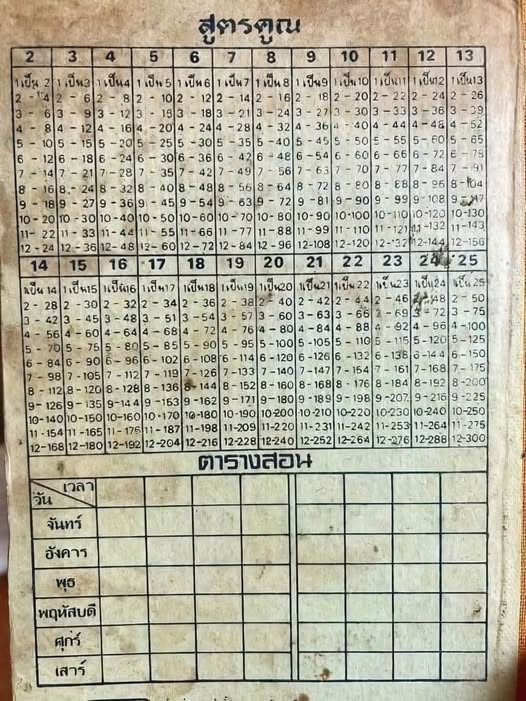 สูตรคูณ
2 3 4 5 6 7 8 9 10 11 12 13
1 เป็น 2 1 เป็น 3 1 เป็น 4 1 เป็น 5 1 เป็น 6 1 เป็น 7 1 เป็น 8 1 เป็น 9 1 เป็น 10 1 เป็น 11 1 เป็น 12 1 เป็น 13
2 - 4 2 - 6 2 - 8 2 - 10 2 - 12 2 - 14 2 - 16 2 - 18 2 - 20 2 - 22 2 - 24 2 - 26
3 - 6 3 - 9 3 - 12 3 - 15 3 - 18 3 - 21 3 - 24 3 - 27 3 - 30 3 - 33 3 - 36 3 - 39
4 - 8 4 - 12 4 - 16 4 - 20 4 - 24 4 - 28 4 - 32 4 - 36 4 - 40 4 - 44 4 - 48 4 - 52
5 - 10 5 - 15 5 - 20 5 - 25 5 - 30 5 - 35 5 - 40 5 - 45 5 - 50 5 - 55 5 - 60 5 - 65
6 - 12 6 - 18 6 - 24 6 - 30 6 - 36 6 - 42 6 - 48 6 - 54 6 - 60 6 - 66 6 - 72 6 - 78
7 - 14 7 - 21 7 - 28 7 - 35 7 - 42 7 - 49 7 - 56 7 - 63 7 - 70 7 - 77 7 - 84 7 - 91
8 - 16 8 - 24 8 - 32 8 - 40 8 - 48 8 - 56 8 - 64 8 - 72 8 - 80 8 - 88 8 - 96 8 - 104
9 - 18 9 - 27 9 - 36 9 - 45 9 - 54 9 - 63 9 - 72 9 - 81 9 - 90 9 - 99 9 - 108 9 - 117
10 - 20 10 - 30 10 - 40 10 - 50 10 - 60 10 - 70 10 - 80 10 - 90 10 - 100 10 - 110 10 - 120 10 - 130
11 - 22 11 - 33 11 - 44 11 - 55 11 - 66 11 - 77 11 - 88 11 - 99 11 - 110 11 - 121 11 - 132 11 - 143
12 - 24 12 - 36 12 - 48 12 - 60 12 - 72 12 - 84 12 - 96 12 - 108 12 - 120 12 - 132 12 - 144 12 - 156
14 15 16 17 18 19 20 21 22 23 24 25
1 เป็น 14 1 เป็น 15 1 เป็น 16 1 เป็น 17 1 เป็น 18 1 เป็น 19 1 เป็น 20 1 เป็น 21 1 เป็น 22 1 เป็น 23 1 เป็น 24 1 เป็น 25
2 - 28 2 - 30 2 - 32 2 - 34 2 - 36 2 - 38 2 - 40 2 - 42 2 - 44 2 - 46 2 - 48 2 - 50
3 - 42 3 - 45 3 - 48 3 - 51 3 - 54 3 - 57 3 - 60 3 - 63 3 - 66 3 - 69 3 - 72 3 - 75
4 - 56 4 - 60 4 - 64 4 - 68 4 - 72 4 - 76 4 - 80 4 - 84 4 - 88 4 - 92 4 - 96 4 - 100
5 - 70 5 - 75 5 - 80 5 - 85 5 - 90 5 - 95 5 - 100 5 - 105 5 - 110 5 - 115 5 - 120 5 - 125
6 - 84 6 - 90 6 - 96 6 - 102 6 - 108 6 - 114 6 - 120 6 - 126 6 - 132 6 - 138 6 - 144 6 - 150
7 - 98 7 - 105 7 - 112 7 - 119 7 - 126 7 - 133 7 - 140 7 - 147 7 - 154 7 - 161 7 - 168 7 - 175
8 - 112 8 - 120 8 - 128 8 - 136 8 - 144 8 - 152 8 - 160 8 - 168 8 - 176 8 - 184 8 - 192 8 - 200
9 - 126 9 - 135 9 - 144 9 - 153 9 - 162 9 - 171 9 - 180 9 - 189 9 - 198 9 - 207 9 - 216 9 - 225
10 - 140 10 - 150 10 - 160 10 - 170 10 - 180 10 - 190 10 - 200 10 - 210 10 - 220 10 - 230 10 - 240 10 - 250
11 - 154 11 - 165 11 - 176 11 - 187 11 - 198 11 - 209 11 - 220 11 - 231 11 - 242 11 - 253 11 - 264 11 - 275
12 - 168 12 - 180 12 - 192 12 - 204 12 - 216 12 - 228 12 - 240 12 - 252 12 - 264 12 - 276 12 - 288 12 - 300
ตารางสอน
เวลา
วัน
จันทร์
อังคาร
พุธ
พฤหัสบดี
ศุกร์
เสาร์